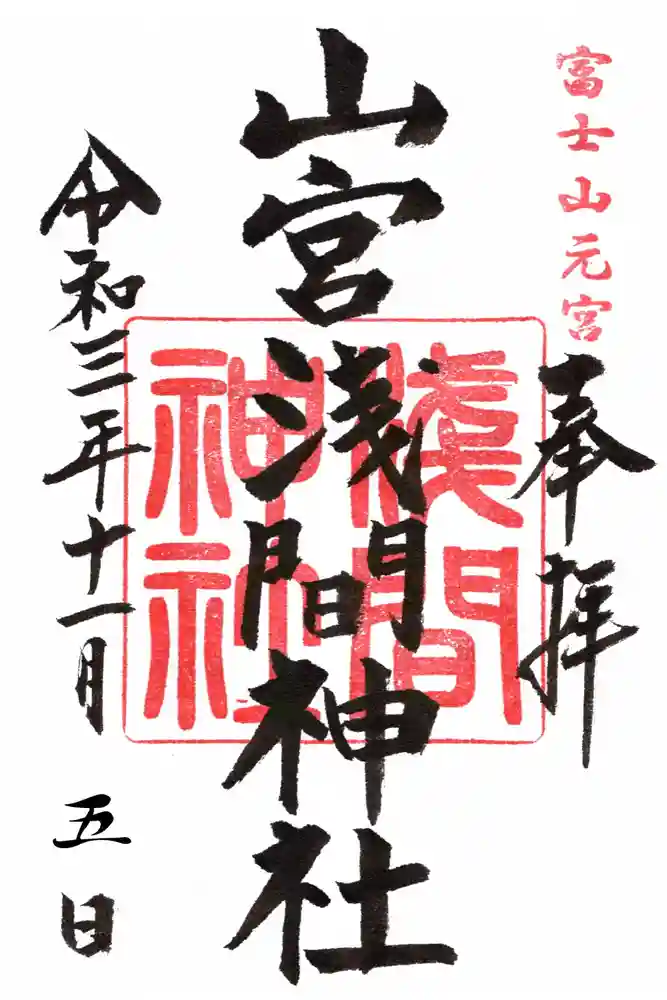 富士山元宮
奉拝
山宮浅間神社
淺間
神社
令和三年十一月五日